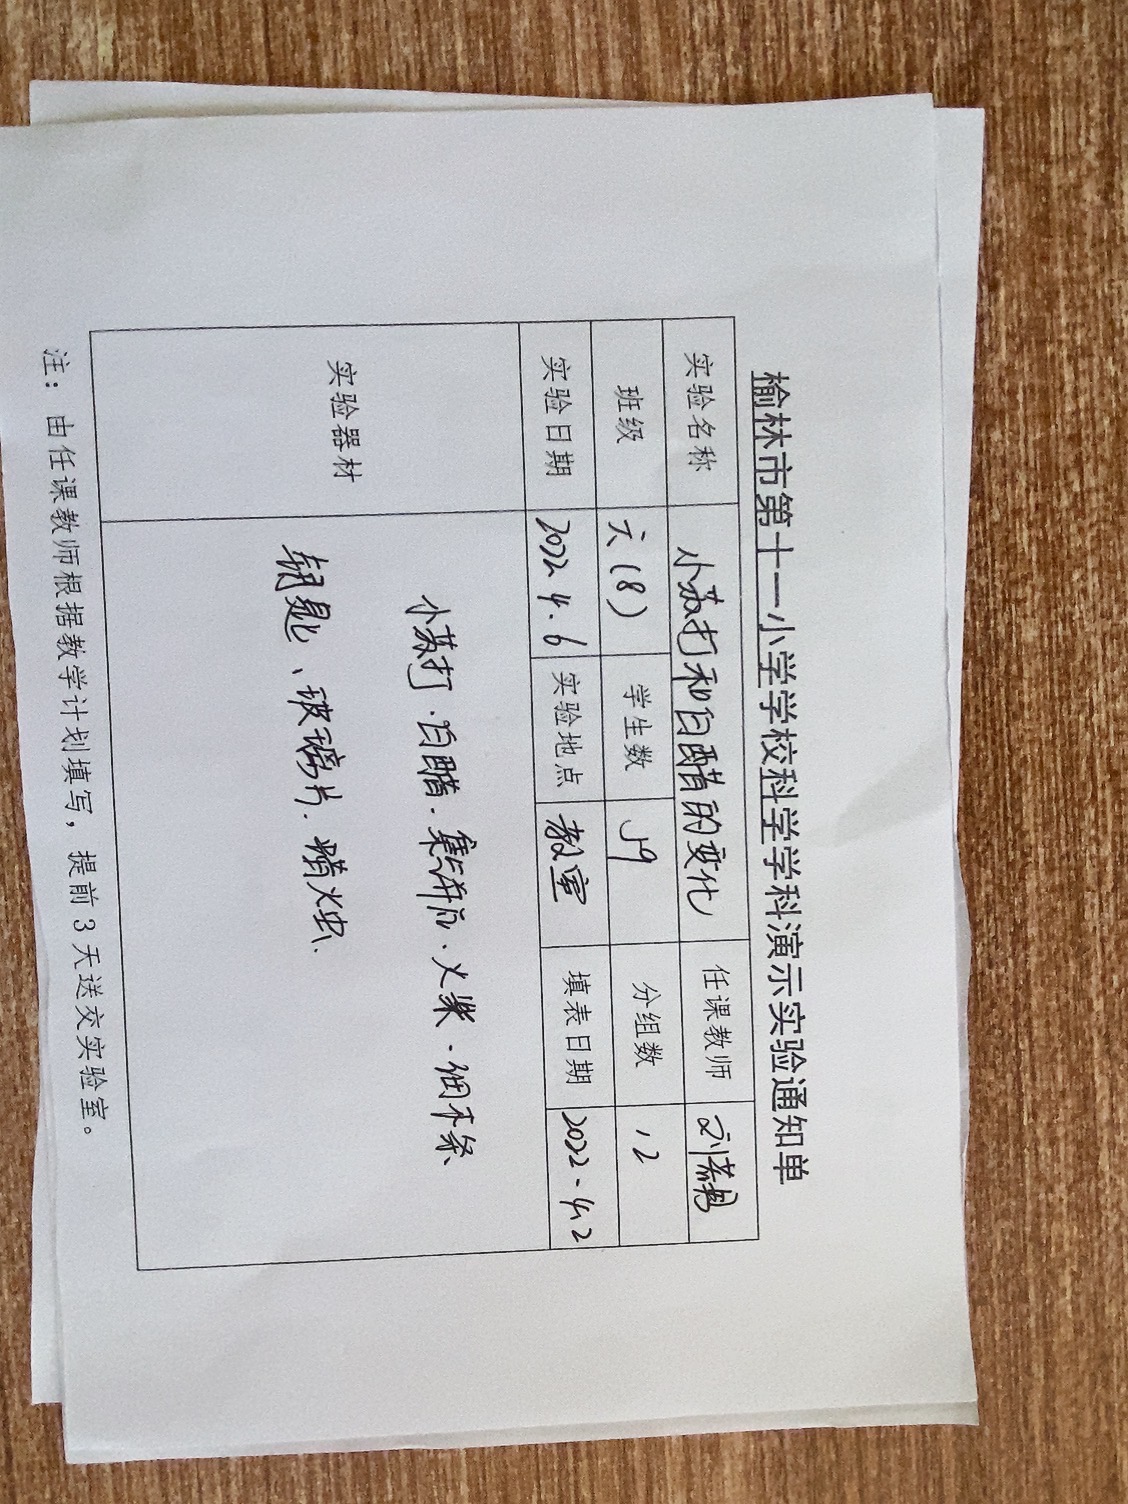 榆林市第十一小学学校科学学科演示实验通知单
实验名称 小苏打和白醋的变化 任课教师 刘
班级 六(8) 学生数 59 分组数 12
实验日期 2022 4.6 实验地点 教室 填表日期 2022.4.2
实验器材
小苏打.白醋.集气瓶.火柴.细木条
钥匙、玻璃片.蜡烛.
注：由任课教师根据教学计划填写，提前3天送交实验室。